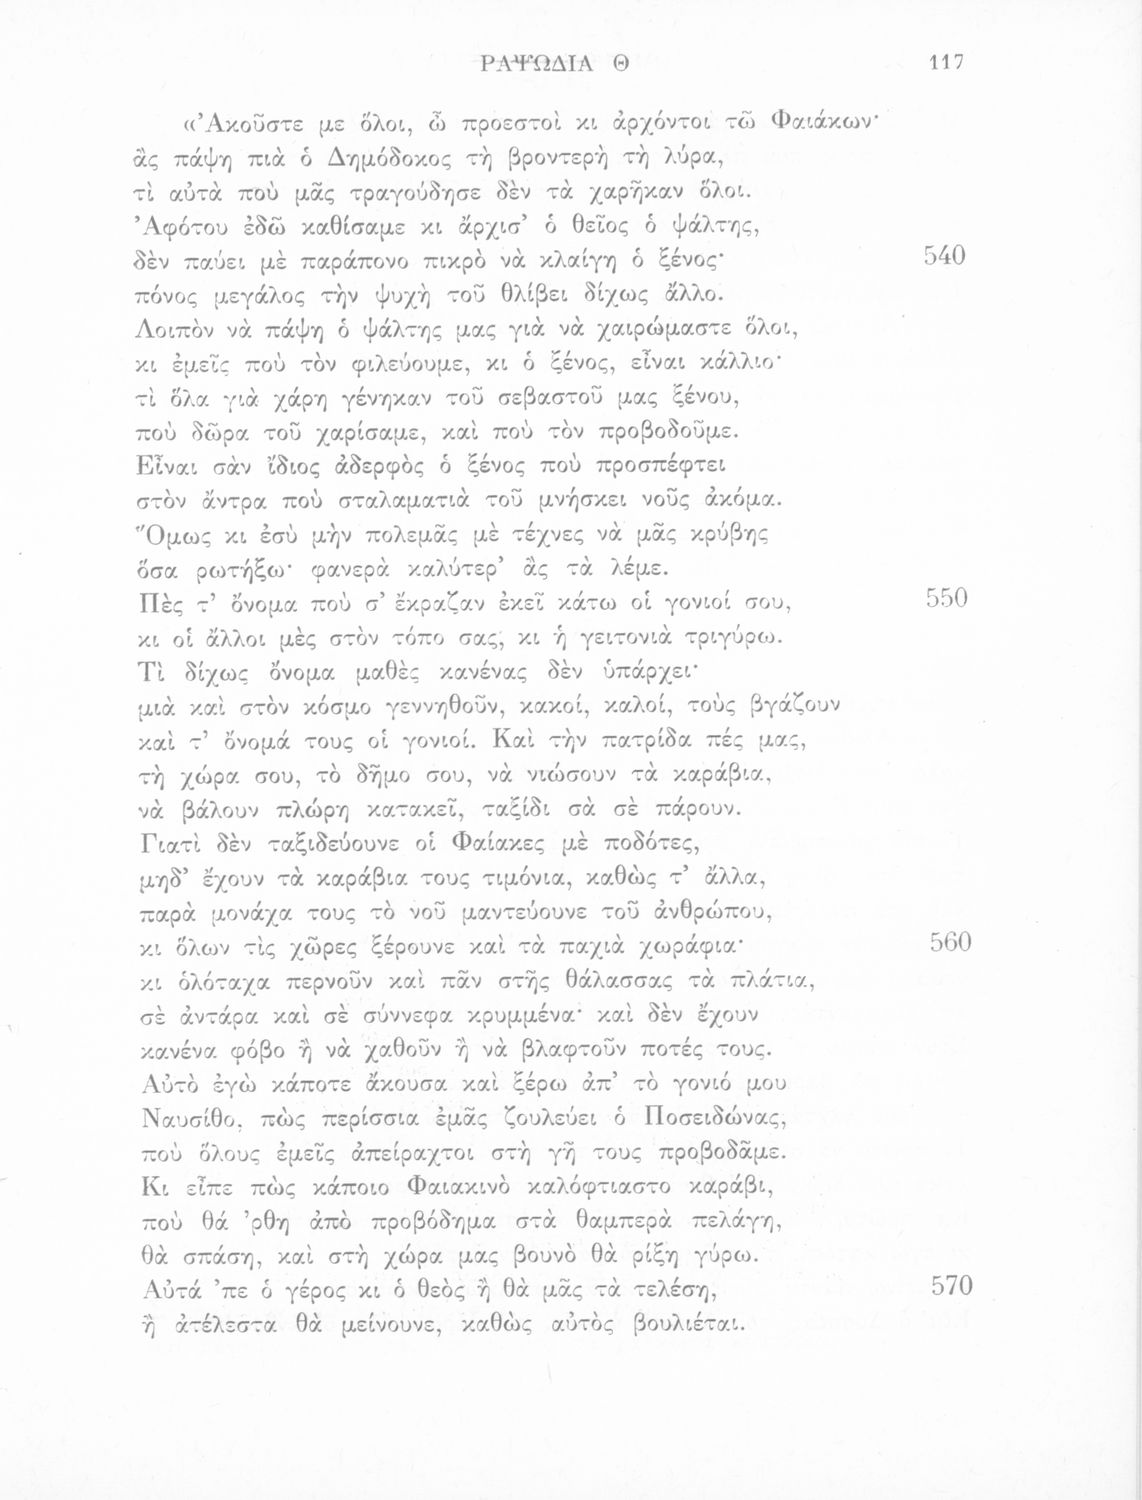 ΡΑΨΩΔΙΑ Θ 117
«Ἀκοῦστε με ὅλοι, ὦ προεστοὶ κι ἀρχόντοι τῶ Φαιάκων·
ἂς πάψη πιὰ ὁ Δημόδοκος τὴ βροντερὴ τὴ λύρα,
τὶ αὐτὰ ποὺ μᾶς τραγούδησε δὲν τὰ χαρῆκαν ὅλοι.
Ἀφότου ἐδῶ καθίσαμε κι ἄρχισ’ ὁ θεῖος ὁ ψάλτης,
δὲν παύει μὲ παράπονο πικρὸ νὰ κλαίγη ὁ ξένος· 540
πόνος μεγάλος τὴν ψυχὴ τοῦ θλίβει δίχως ἄλλο.
Λοιπὸν νὰ πάψη ὁ ψάλτης μας γιὰ νὰ χαιρώμαστε ὅλοι,
κι ἐμεῖς ποὺ τὸν φιλεύουμε, κι ὁ ξένος, εἶναι κάλλιο·
τὶ ὅλα γιὰ χάρη γένηκαν τοῦ σεβαστοῦ μας ξένου,
ποὺ δῶρα τοῦ χαρίσαμε, καὶ ποὺ τὸν προβοδοῦμε.
Εἶναι σὰν ἴδιος ἀδερφὸς ὁ ξένος ποὺ προσπέφτει
στὸν ἄντρα ποὺ σταλαματιὰ τοῦ μνήσκει νοῦς ἀκόμα.
Ὅμως κι ἐσὺ μὴν πολεμᾶς μὲ τέχνες νὰ μᾶς κρύβης
ὅσα ρωτήξω· φανερὰ καλύτερ’ ἂς τὰ λέμε.
Πὲς τ’ ὄνομα ποὺ σ’ ἔκραζαν ἐκεῖ κάτω οἱ γονιοί σου, 550
κι οἱ ἄλλοι μὲς στὸν τόπο σας, κι ἡ γειτονιὰ τριγύρω.
Τὶ δίχως ὄνομα μαθὲς κανένας δὲν ὑπάρχει·
μιὰ καὶ στὸν κόσμο γεννηθοῦν, κακοί, καλοί, τοὺς βγάζουν
καὶ τ’ ὄνομά τους οἱ γονιοί. Καὶ τὴν πατρίδα πές μας,
τὴ χώρα σου, τὸ δῆμο σου, νὰ νιώσουν τὰ καράβια,
νὰ βάλουν πλώρη κατακεῖ, ταξίδι σὰ σὲ πάρουν.
Γιατὶ δὲν ταξιδεύουνε οἱ Φαίακες μὲ ποδότες,
μηδ’ ἔχουν τὰ καράβια τους τιμόνια, καθὼς τ’ ἄλλα,
παρὰ μονάχα τους τὸ νοῦ μαντεύουνε τοῦ ἀνθρώπου,
κι ὅλων τὶς χῶρες ξέρουνε καὶ τὰ παχιὰ χωράφια· 560
κι ὁλόταχα περνοῦν καὶ πᾶν στῆς θάλασσας τὰ πλάτια,
σὲ ἀντάρα καὶ σὲ σύννεφα κρυμμένα· καὶ δὲν ἔχουν
κανένα φόβο ἢ νὰ χαθοῦν ἢ νὰ βλαφτοῦν ποτές τους.
Αὐτὸ ἐγὼ κάποτε ἄκουσα καὶ ξέρω ἀπ’ τὸ γονιό μου
Ναυσίθο, πὼς περίσσια ἐμᾶς ζουλεύει ὁ Ποσειδώνας,
ποὺ ὅλους ἐμεῖς ἀπείραχτοι στὴ γῆ τους προβοδᾶμε.
Κι εἶπε πὼς κάποιο Φαιακινὸ καλόφτιαστο καράβι,
ποὺ θά ’ρθη ἀπὸ προβόδημα στὰ θαμπερὰ πελάγη,
θὰ σπάση, καὶ στὴ χώρα μας βουνὸ θὰ ρίξη γύρω.
Αὐτά ’πε ὁ γέρος κι ὁ θεὸς ἢ θὰ μᾶς τὰ τελέση, 570
ἢ ἀτέλεστα θὰ μείνουνε, καθὼς αὐτὸς βουλιέται.